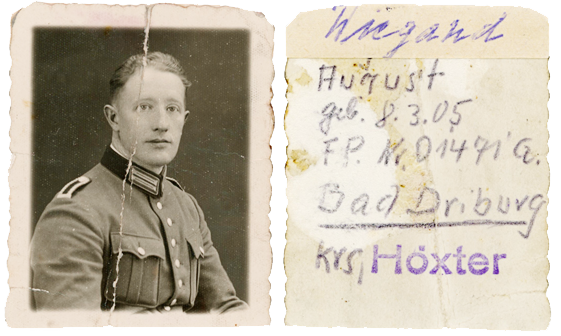 Wiegand
August
geb. 8.3.05
F.P. Nr. 01471 G.
Bad Driburg
Krs, Höxter